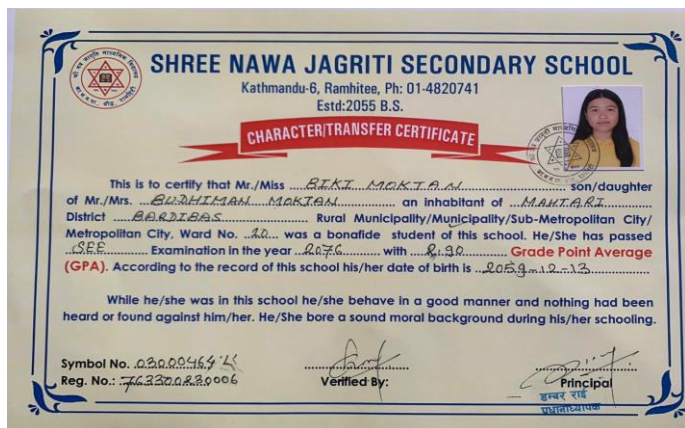 SHREE NAWA JAGRITI SECONDARY SCHOOL
Kathmandu-6, Ramhitee, Ph: 01-4820741
Estd:2055 B.S.
CHARACTER/TRANSFER CERTIFICATE
This is to certify that Mr./Miss BIKI MOKTAN son/daughter
of Mr./Mrs. BUDHIMAN MOKTAN an inhabitant of MAHTARI
District BARDIBAS Rural Municipality/Municipality/Sub-Metropolitan City/
Metropolitan City, Ward No. 10 was a bonafide student of this school. He/She has passed
SEE Examination in the year 2076 with 2.90 Grade Point Average
(GPA). According to the record of this school his/her date of birth is 2059-12-13
While he/she was in this school he/she behave in a good manner and nothing had been
heard or found against him/her. He/She bore a sound moral background during his/her schooling.
Symbol No. 03000464
Reg. No.: 763300230006
Verified By:
Principal
डम्बर राई
प्रधानाध्यापक